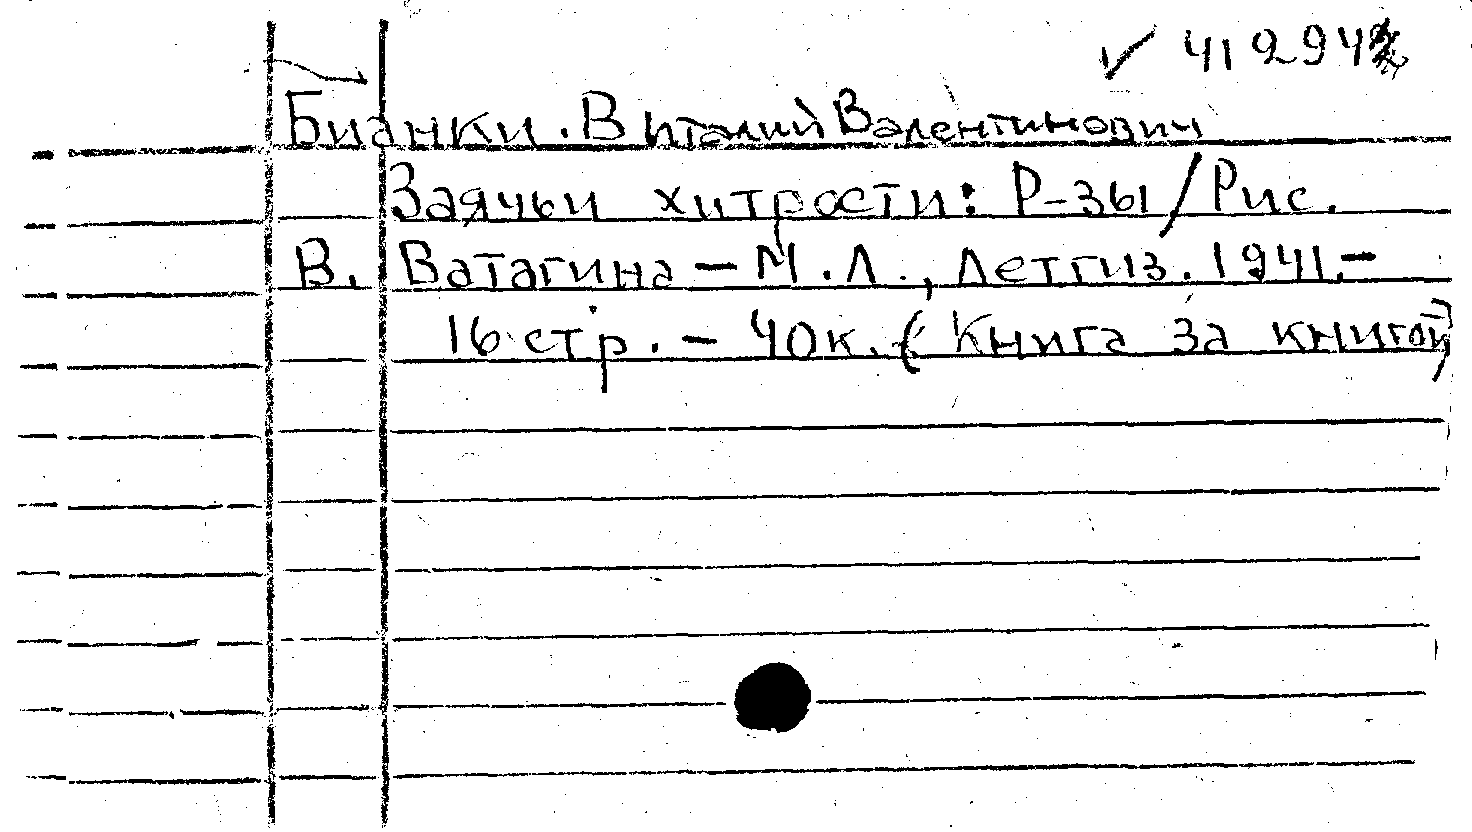 ✓ 41294
Бианки. Виталий Валентинович
Заячьи хитрости: Р-зы/Рис.
В. Ватагина — М.Л., Детгиз. 1941.—
16 стр. — 40к. (Книга за книгой)